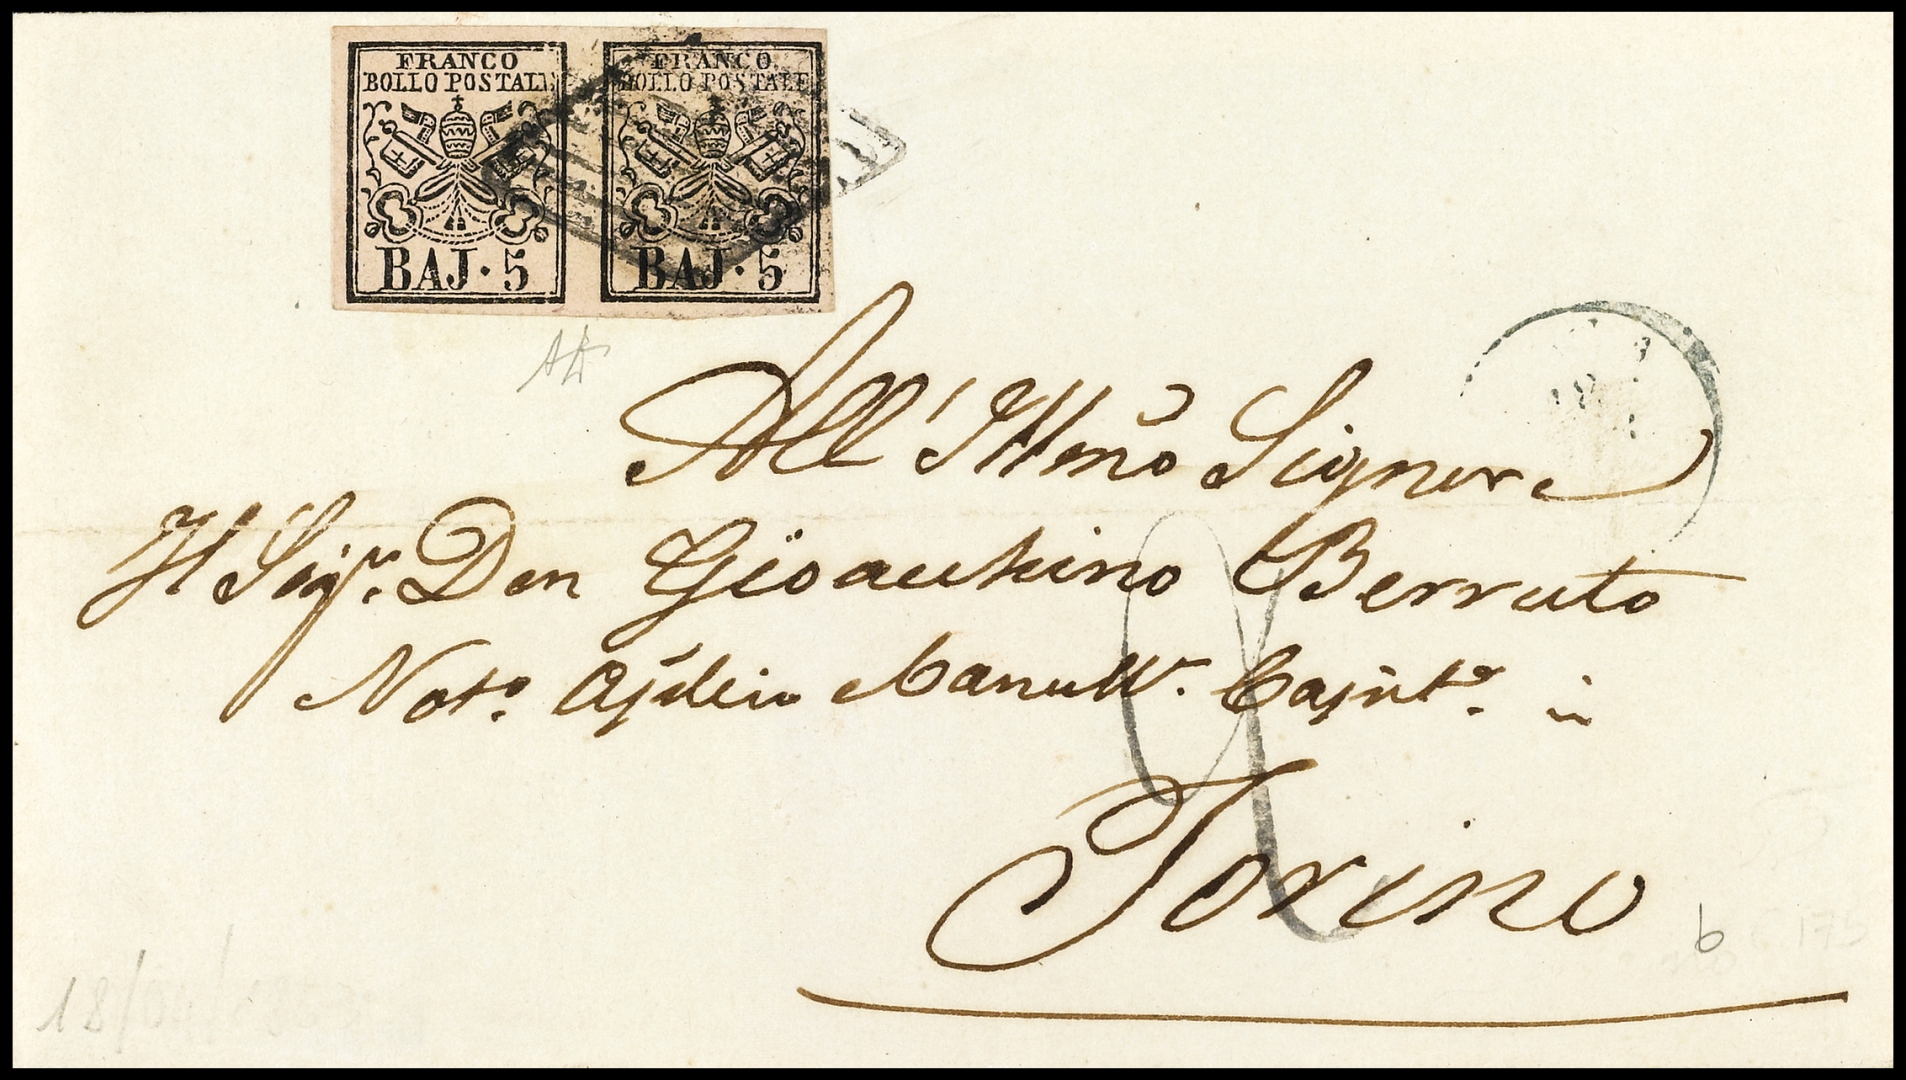 FRANCO
BOLLO POSTALE
BAJ. 5
FRANCO
BOLLO POSTALE
BAJ. 5
All' Illmo Signore
Il Sigr. Don Gioacchino Berruto
Noto. in
Torino
b
18/04/